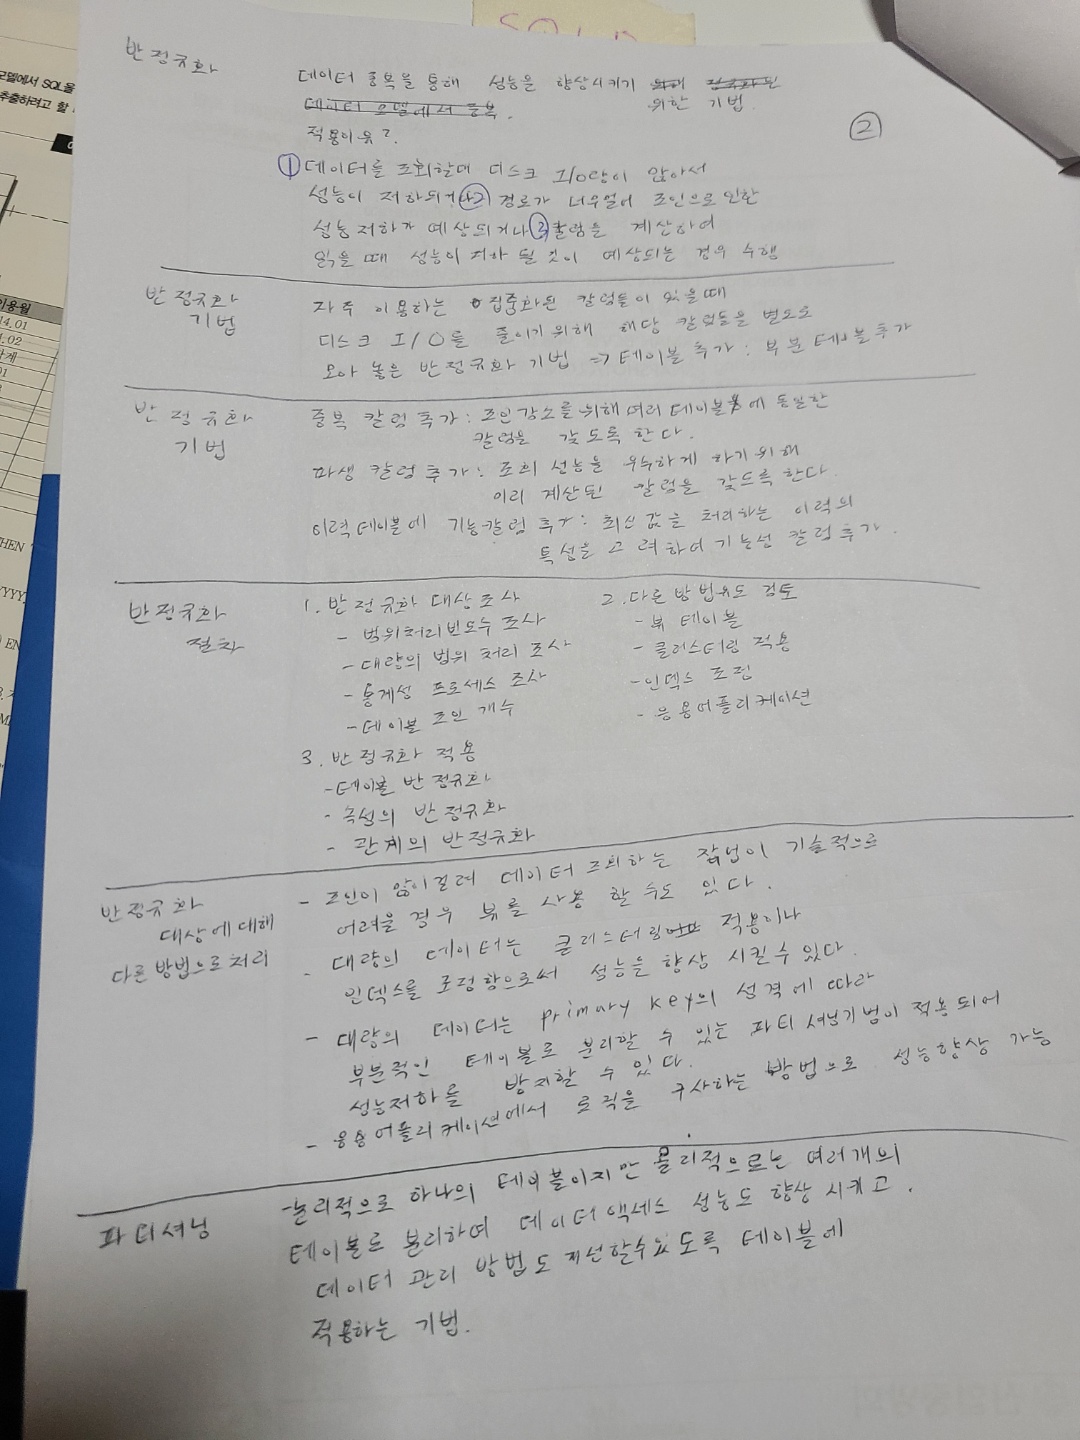 반정규화
데이터 중복을 통해 성능을 향상시키기
위한 기법.
적용이유?
②
① 데이터를 조회할때 디스크 I/O량이 많아서
성능이 저하되거나 ② 경로가 너무멀어 조인으로 인한
성능저하가 예상되거나 ③ 칼럼을 계산하여
읽을 때 성능이 저하 될 것이 예상되는 경우 수행
반정규화
기법
자주 이용하는 집중화된 칼럼들이 있을때
디스크 I/O를 줄이기 위해 해당 칼럼들을 별도로
모아 놓은 반정규화 기법 => 테이블 추가 : 부분테이블추가
반정규화
기법
중복 칼럼 추가 : 조인감소를 위해 여러 테이블에 동일한
칼럼을 갖도록 한다.
파생 칼럼 추가 : 조회 성능을 우수하게 하기 위해
미리 계산된 칼럼을 갖도록 한다.
이력테이블에 기능칼럼 추가 : 최신 값을 처리하는 이력의
특성을 고려하여 기능성 칼럼 추가.
반정규화
절차
1. 반정규화 대상조사
- 범위처리빈도수 조사
- 대량의 범위 처리 조사
- 통계성 프로세스 조사
- 테이블 조인 개수
2. 다른 방법유도 검토
- 뷰 테이블
- 클러스터링 적용
- 인덱스 조정
- 응용어플리케이션
3. 반정규화 적용
- 테이블 반정규화
- 속성의 반정규화
- 관계의 반정규화
반정규화
대상에 대해
다른 방법으로 처리
- 조인이 많이걸려 데이터 조회하는 작업이 기술적으로
어려울 경우 뷰를 사용 할 수도 있다.
- 대량의 데이터는 클러스터링 적용이나
인덱스를 조정함으로써 성능을 향상 시킬수 있다.
- 대량의 데이터는 primary key의 성격에 따라
부분적인 테이블로 분리할 수 있는 파티셔닝기법이 적용되어
성능저하를 방지할 수 있다.
- 응용어플리케이션에서 로직을 구사하는 방법으로 성능향상 가능
파티셔닝
- 논리적으로 하나의 테이블이지만 물리적으로는 여러개의
테이블로 분리하여 데이터액세스 성능도 향상 시키고.
데이터 관리 방법도 개선할수있도록 테이블에
적용하는 기법.